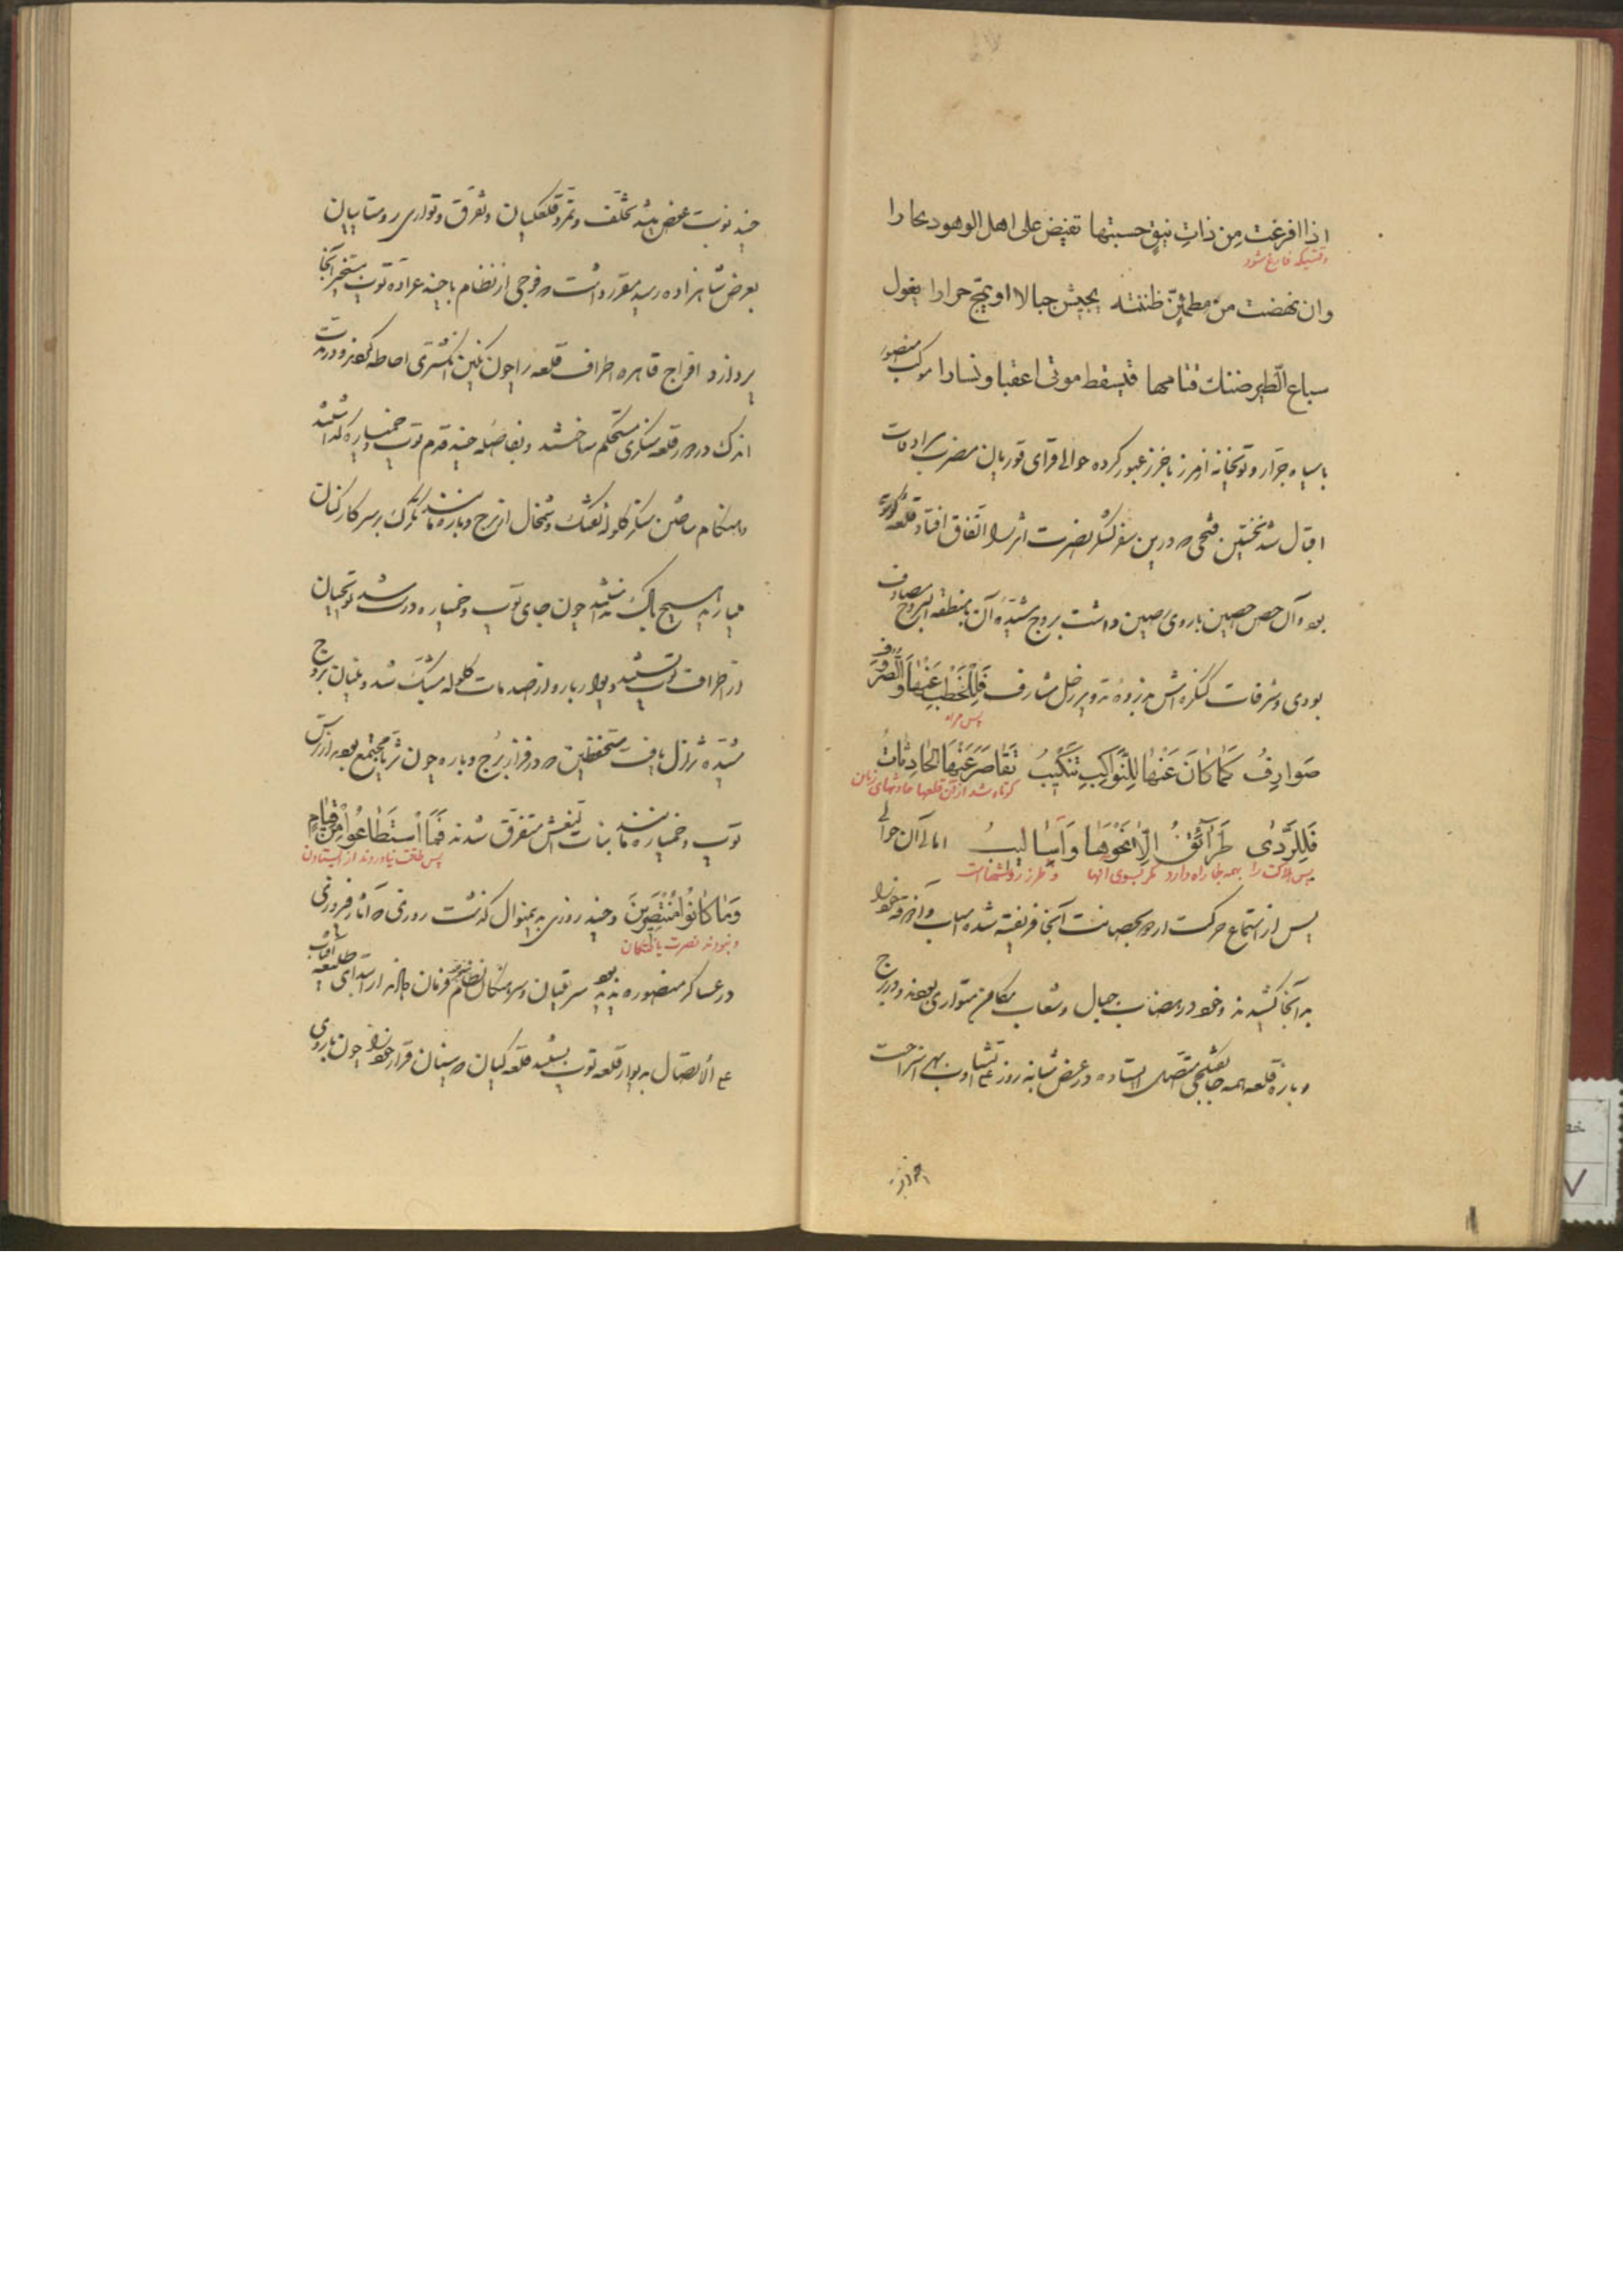 اذا افرغت من ذات نیق حسبتها تفیض علی اهل الوهود بحارا
وقتیکه فارغ شود
وان نهضت من مطمئن ظننته یجیش جبالا او یمج حرارا یغول
سباع الطیر ضنك قتامها فتسقط موتی اعقبا و نسارا موکب منصور
با سپاه جرار و توپخانه از مرز باخرز عبور کرده حوالی قرای قوریان مضرب سرادقات
اقبال شد نخستین فتحی که درین سفر لشکر نصرت اثر را اتفاق افتاد قلعه
بود و آن حصن حصین باروی رصین داشت بروج مشیده آن با منطقه البروج مصادف
بودی و شرفات کنگره اش بر ذروه تدویر زحل مشارف فللخطب عنها والصروف
پس مراه
صوارف کما کان عنها للنواکب تنکیب تقاصر عنها الحادثات
کوتاه شد از آن قلعها حادثهای زمان
فللردی طرائق الا نحوها و اسالیب اهالی آن حوالی
پس هلاکت را بهمه جا راه دارد مگر بسوی آنها و طرز روشهاست
پس از استماع حرکت اردو بحصانت آنجا فریفته شده اسباب و آذوقه خود را
بدآنجا کشیدند و خود در هضاب جبال و شعاب مکامن متواری بودند و در برج
و باره قلعه همه جا تفنگچی متصل ایستاده در عرض شبانه روز تشاوب بهر استراحت
چند نوبت عرض شد تخلف و تمرد قلعگیان و تفرق و تواری روستاییان
بعرض شاهزاده رسید مقرر داشت که فوجی از نظام با چند عراده توپ بتسخیر آنجا
پردازد افواج قاهره اطراف قلعه را چون نگین انگشتری احاطه کردند و در مدت
اندک در دور قلعه سنگری مستحکم ساختند و بفاصله چند قدم توپ و خمپاره گذاشتند
هنگام ساختن سنگر گلوله تفنگ و شمخال از برج و باره مانند تگرگ بر سر کارکنان
میبارید هیچ باک نداشتند چون جای توپ و خمپاره درست شد توپچیان
از اطراف توپ بستند دیوار باره از صدمات گلوله مشبک شد و بنیان بروج
مشیده تزلزل یافت مستحفظین که در فراز برج و باره چون ثریا مجتمع بودند از ترس
توپ و خمپاره مانند بنات نعش متفرق شدند فما استطاعوا من قیام
پس طاقت نیاوردند از ایستادن
وما کانوا منتصرین و چند روزی بدینمنوال گذشت روزی که آثار فیروزی
و نبودند نصرت یافتگان
در عساکر منصوره پدید بود سرتیپان و سرهنگان نظام فرمان دادند از ابتدای طلیعه آفتاب
علی الاتصال بدیوار قلعه توپ بستند قلعه گیان قرار خود را چون باروی